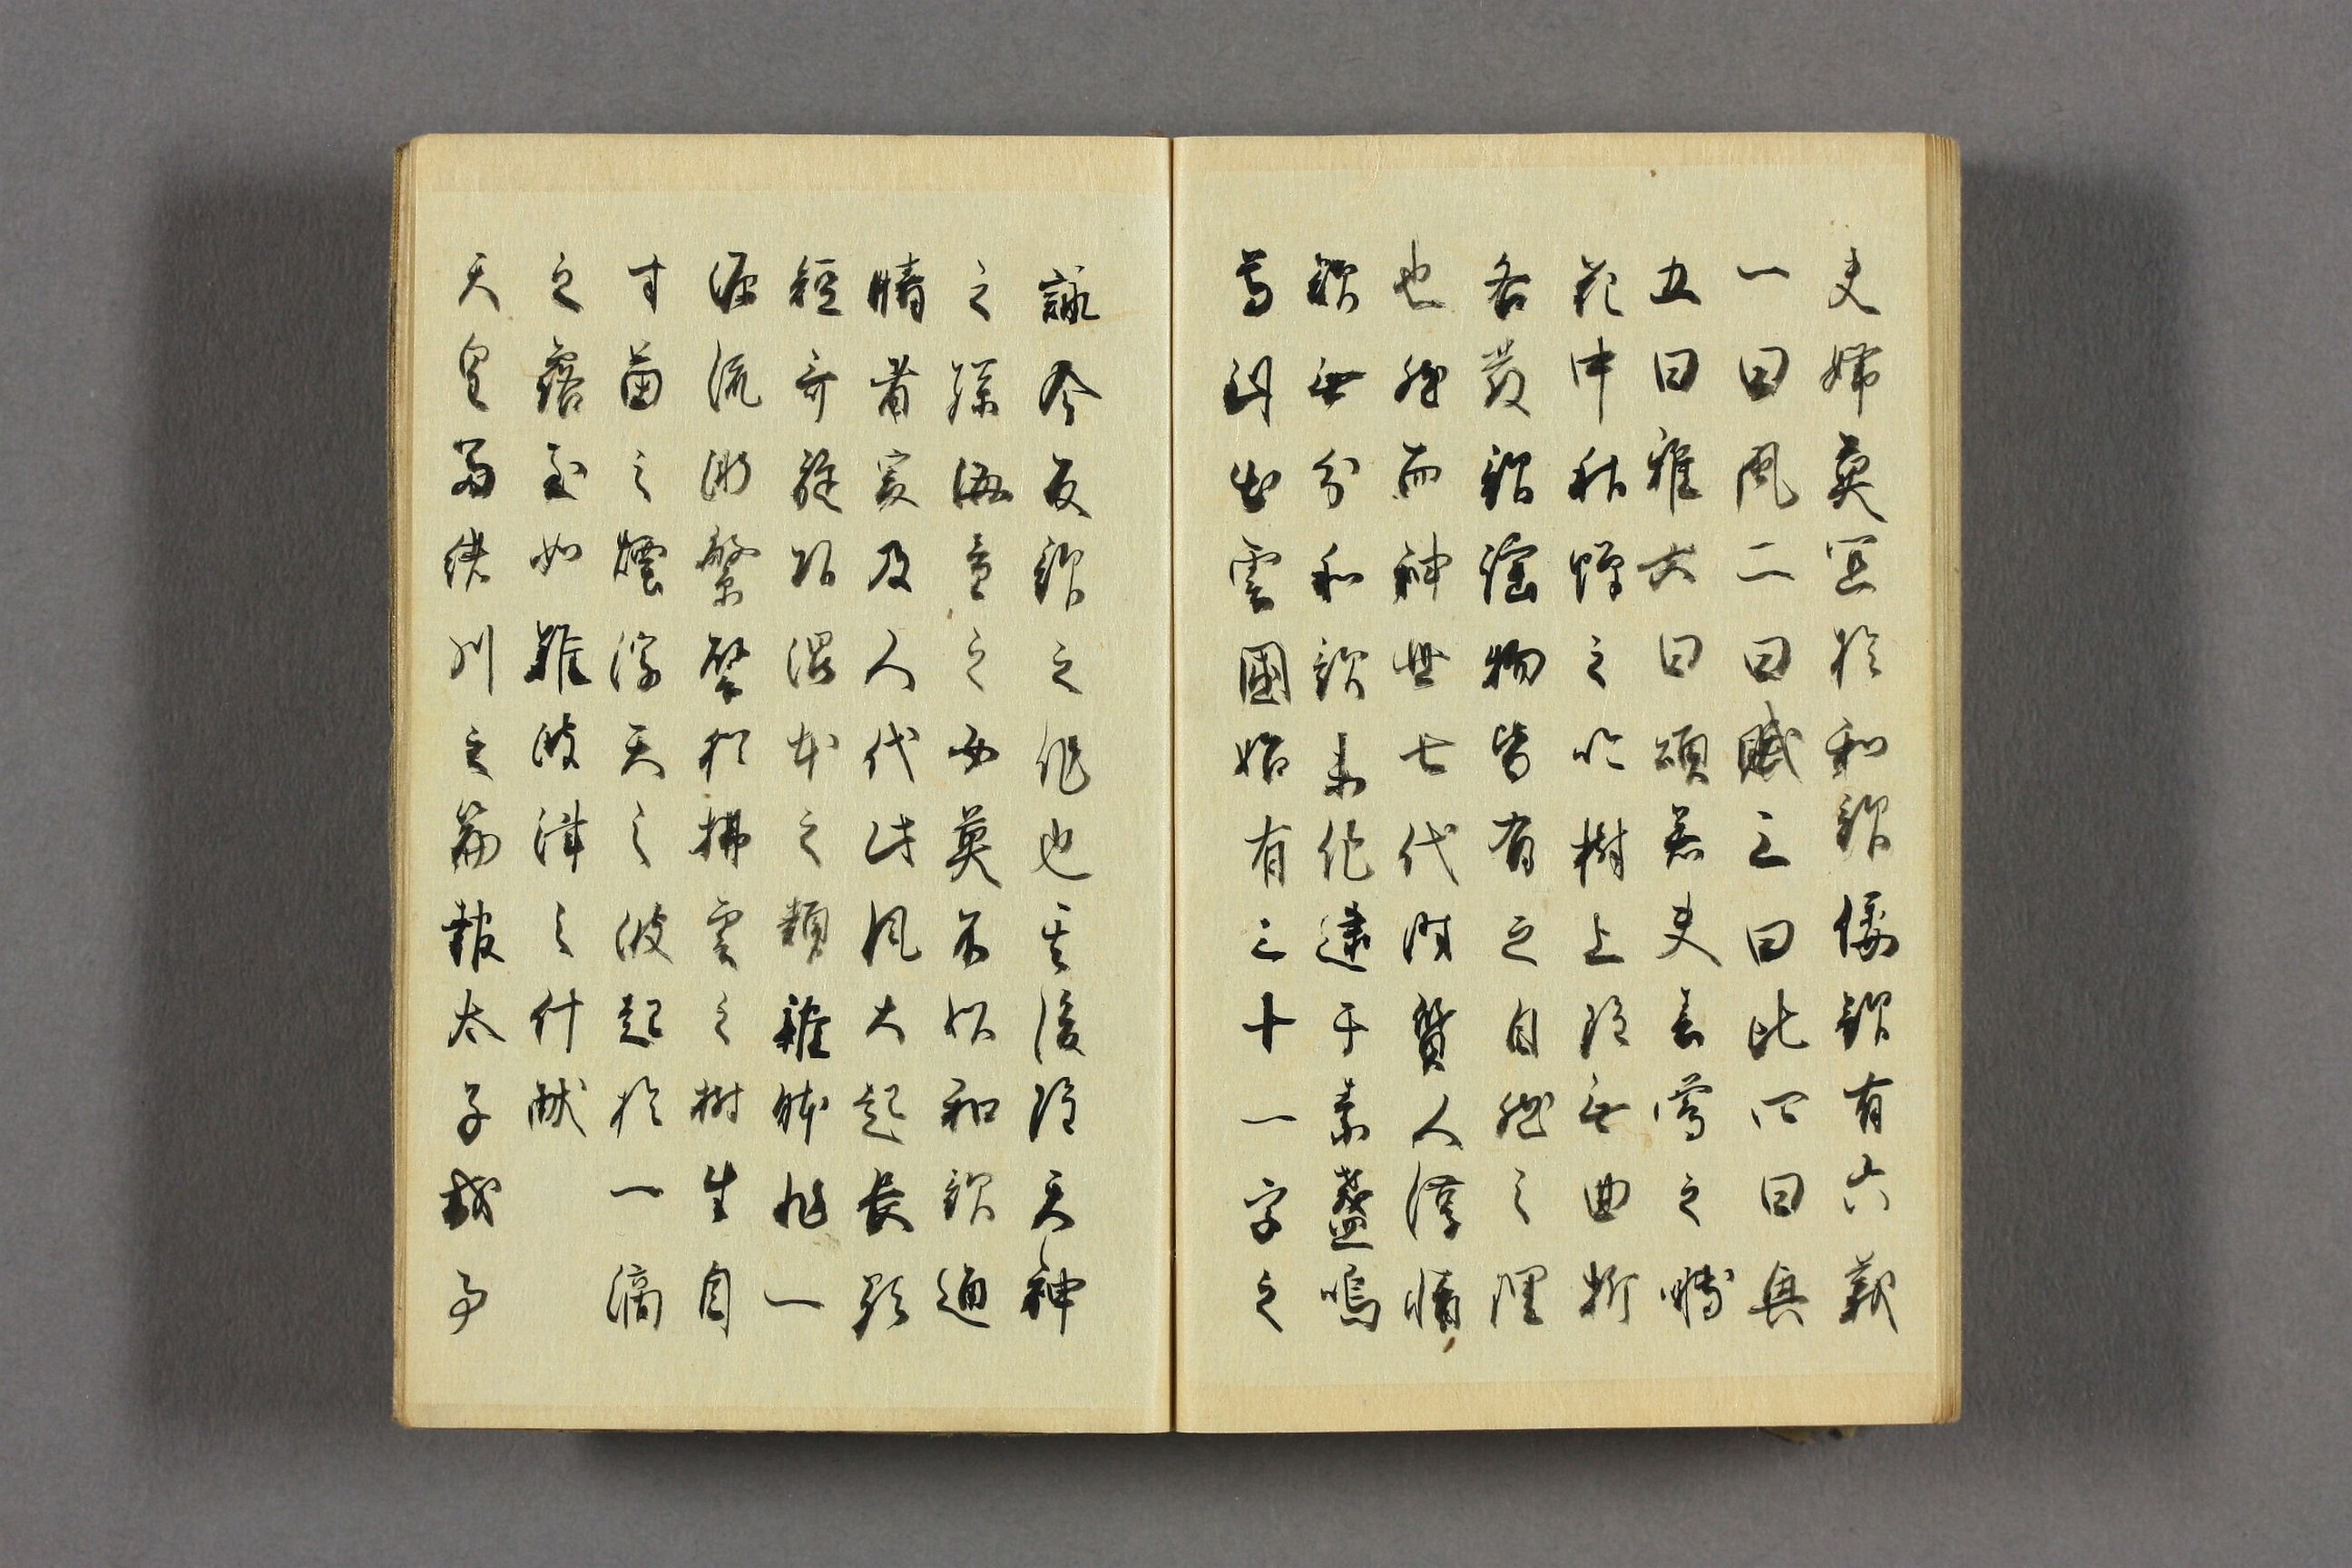 夫婦莫冝於和歌倭歌有六義
一曰風二曰賦三曰比四曰興
五曰雅六曰頌若夫春鶯之囀
花中秋蟬之吟樹上雖無曲折
各發歌謠物皆有之自然之理
也然而神世七代時質人淳情
欲無分和歌未作逮于素盞嗚
尊到出雲國始有三十一字之
詠今反歌之作也其後雖天神
之孫海童之女莫不以和歌通
情者爰及人代此風大起長歌
短哥旋頭混本之類雜躰非一
源流漸繁譬猶拂雲之樹生自
寸苗之煙浮天之波起於一滴
之露至如難波津之什献
天皇冨緒川之篇報太子或事